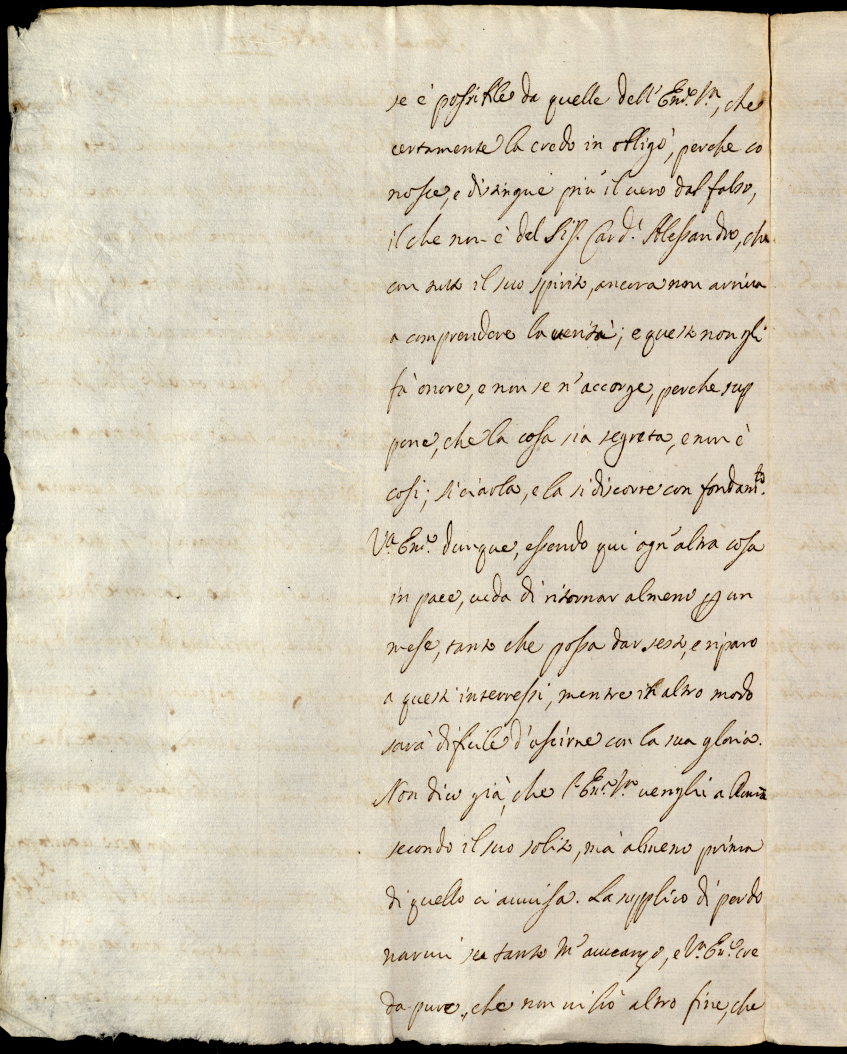 se è possibile da quelle dell'Em.ª V.ª, che
certamente la credo in obligo, perche co
nosce, e distingue più il uero dal falso,
il che non è del Sig.r Card.l Alessandro, che
con tutto il suo spirito, ancora non arriua
a comprendere la uerità; e questo non gli
fà onore, e non se n'accorge, perche sup
pone, che la cosa sia segreta, e non è
così; si ciarla, e la si discorre con fondam.to.
V.ª Em.ª dunque, essendo qui ogn'altra cosa
in pace, ueda di ritornar almeno per un
mese, tanto che possa dar sesto, e riparo
a questi interressi, mentre in altro modo
sarà dificile d'uscirne con la sua gloria.
Non dico già, che l'Em.ª V.ª uenghi a Roma
secondo il suo solito, mà almeno prima
di quello ci auuisa. La supplico di perdo
narmi se tanto m'auuanzo, e V.ª Em.ª cre
da pure, che non ui hò altro fine, che